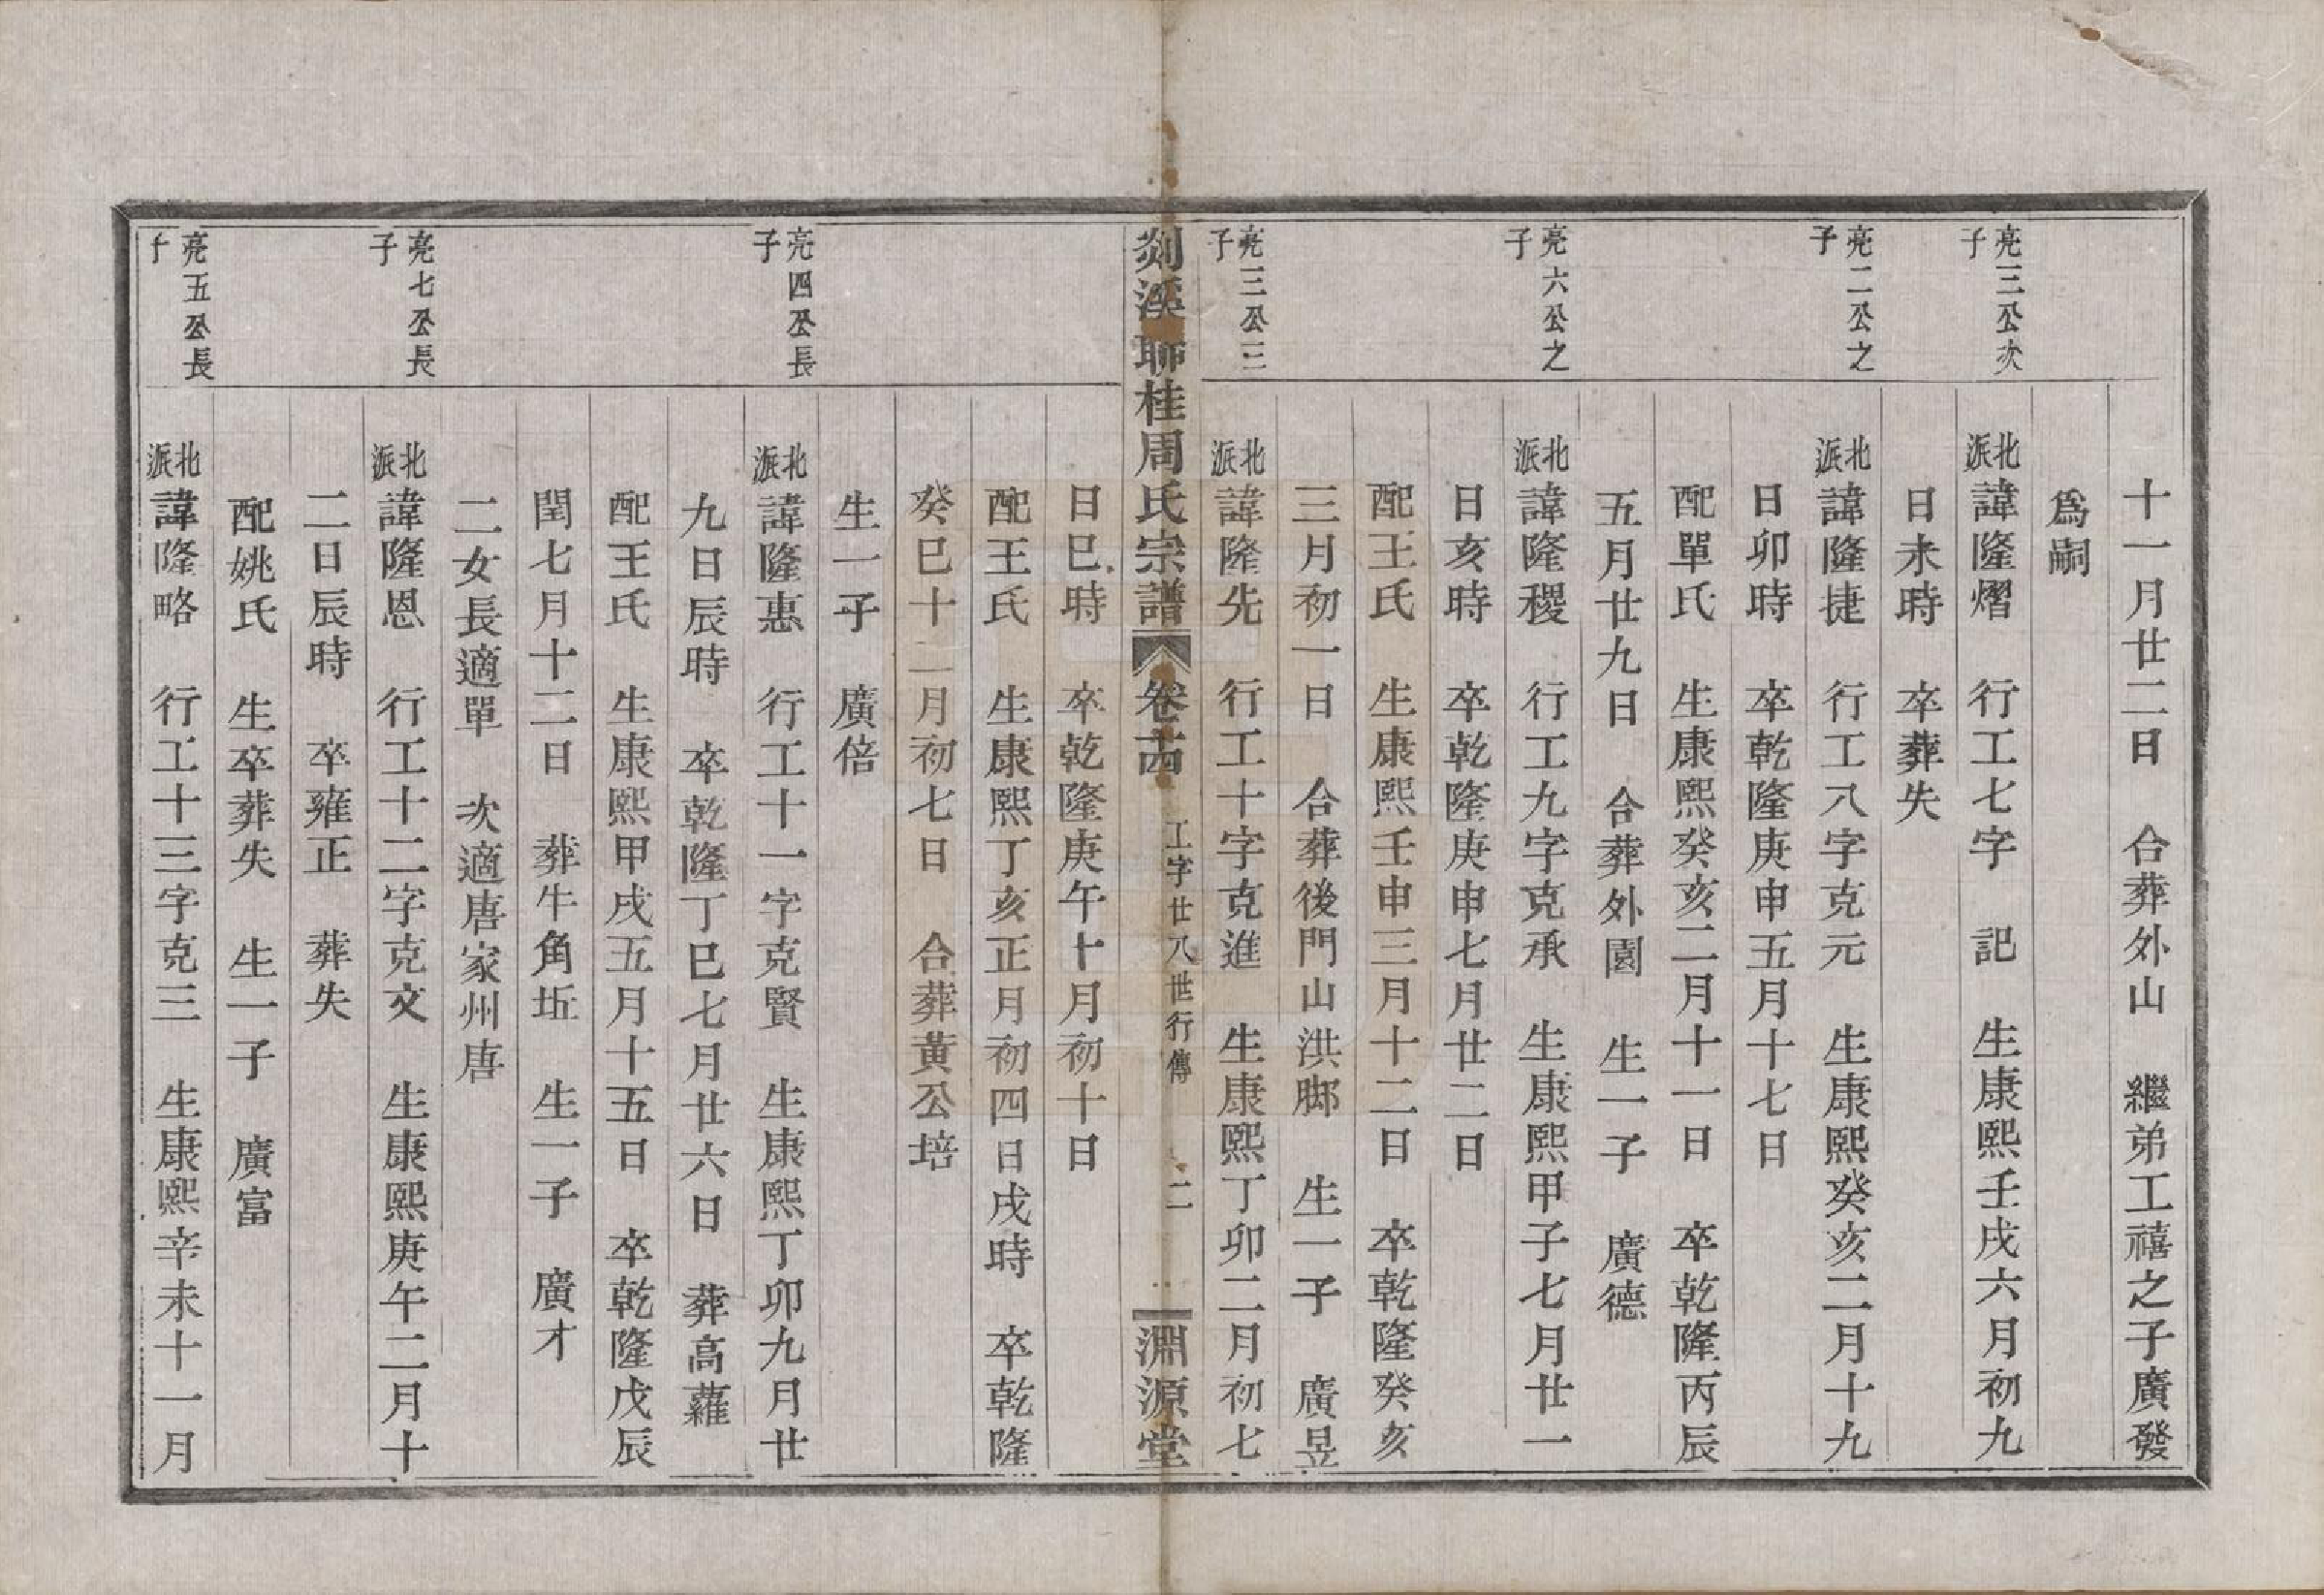 十一月廿二日　合葬外山　繼弟工禧之子廣發
爲嗣
亮三公次子
北派諱隆熠　行工七字　記　生康熙壬戌六月初九
日未時　卒葬失
亮二公之子
北派諱隆捷　行工八字克元　生康熙癸亥二月十九
日卯時　卒乾隆庚申五月十七日
配單氏　生康熙癸亥二月十一日　卒乾隆丙辰
五月廿九日　合葬外園　生一子　廣德
亮六公之子
北派諱隆稷　行工九字克承　生康熙甲子七月廿一
日亥時　卒乾隆庚申七月廿二日
配王氏　生康熙壬申三月十二日　卒乾隆癸亥
三月初一日　合葬後門山洪腳　生一子　廣昱
亮三公三子
北派諱隆先　行工十字克進　生康熙丁卯二月初七
剡溪聯桂周氏宗譜　卷十四　工字廿八世行傳　二　淵源堂
日巳時　卒乾隆庚午十月初十日
配王氏　生康熙丁亥正月初四日戌時　卒乾隆
癸巳十二月初七日　合葬黃公培
生一子　廣倍
亮四公長子
北派諱隆惠　行工十一字克賢　生康熙丁卯九月廿
九日辰時　卒乾隆丁巳七月廿六日　葬高蘿
配王氏　生康熙甲戌五月十五日　卒乾隆戊辰
閏七月十二日　葬牛角坵　生一子　廣才
二女長適單　次適唐家州唐
亮七公長子
北派諱隆恩　行工十二字克文　生康熙庚午二月十
二日辰時　卒雍正　葬失
配姚氏　生卒葬失　生一子　廣富
亮五公長子
北派諱隆略　行工十三字克三　生康熙辛未十一月